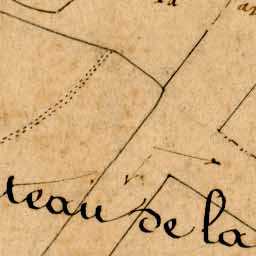 teau de la